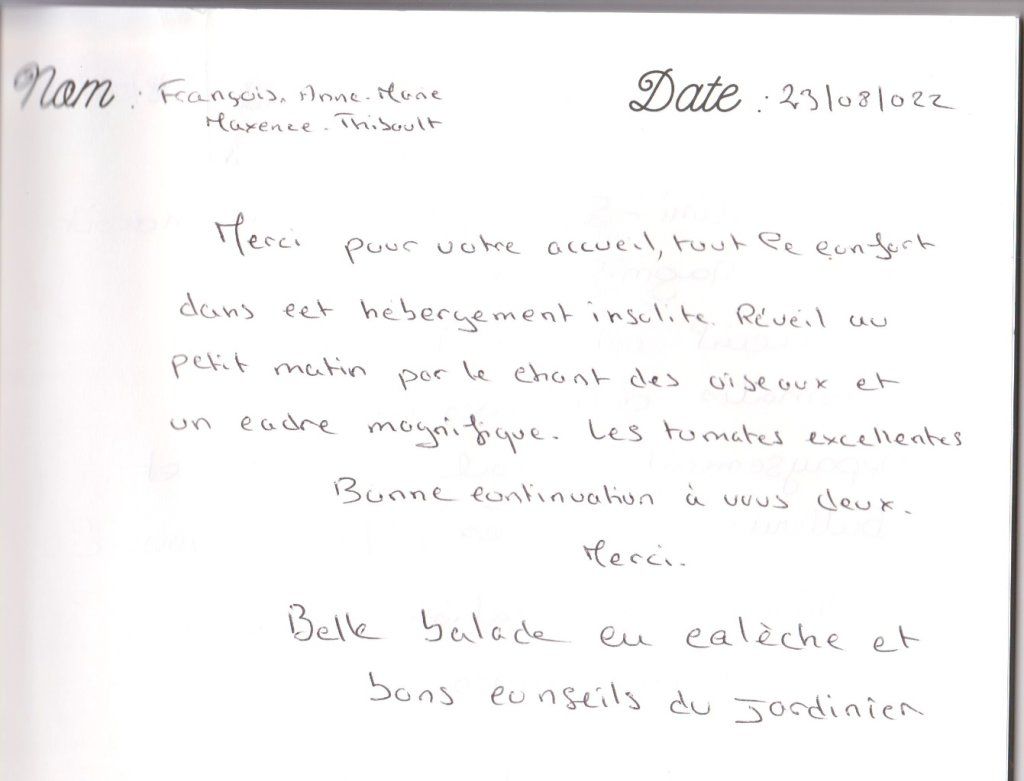 Nom : François, Anne-Marie
Maxence - Thibault
Date : 23/08/022
Merci pour votre accueil, tout le confort
dans cet hébergement insolite. Réveil au
petit matin par le chant des oiseaux et
un cadre magnifique. Les tomates excellentes
Bonne continuation à vous deux.
Merci.
Belle balade en calèche et
bons conseils du Jardinier